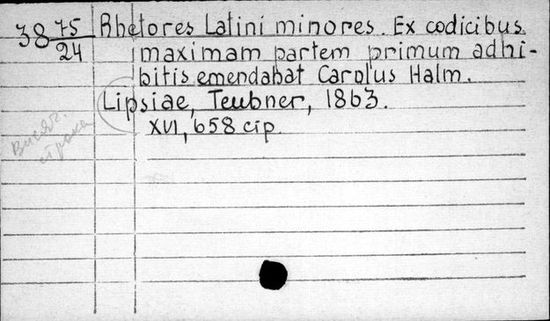 38 75/24 Rhetores Latini minores. Ex codicibus
maximam partem primum adhi-
bitis emendabat Carolus Halm.
Lipsiae, Teubner, 1863.
XVI, 658 стр.
Висяч.
строка